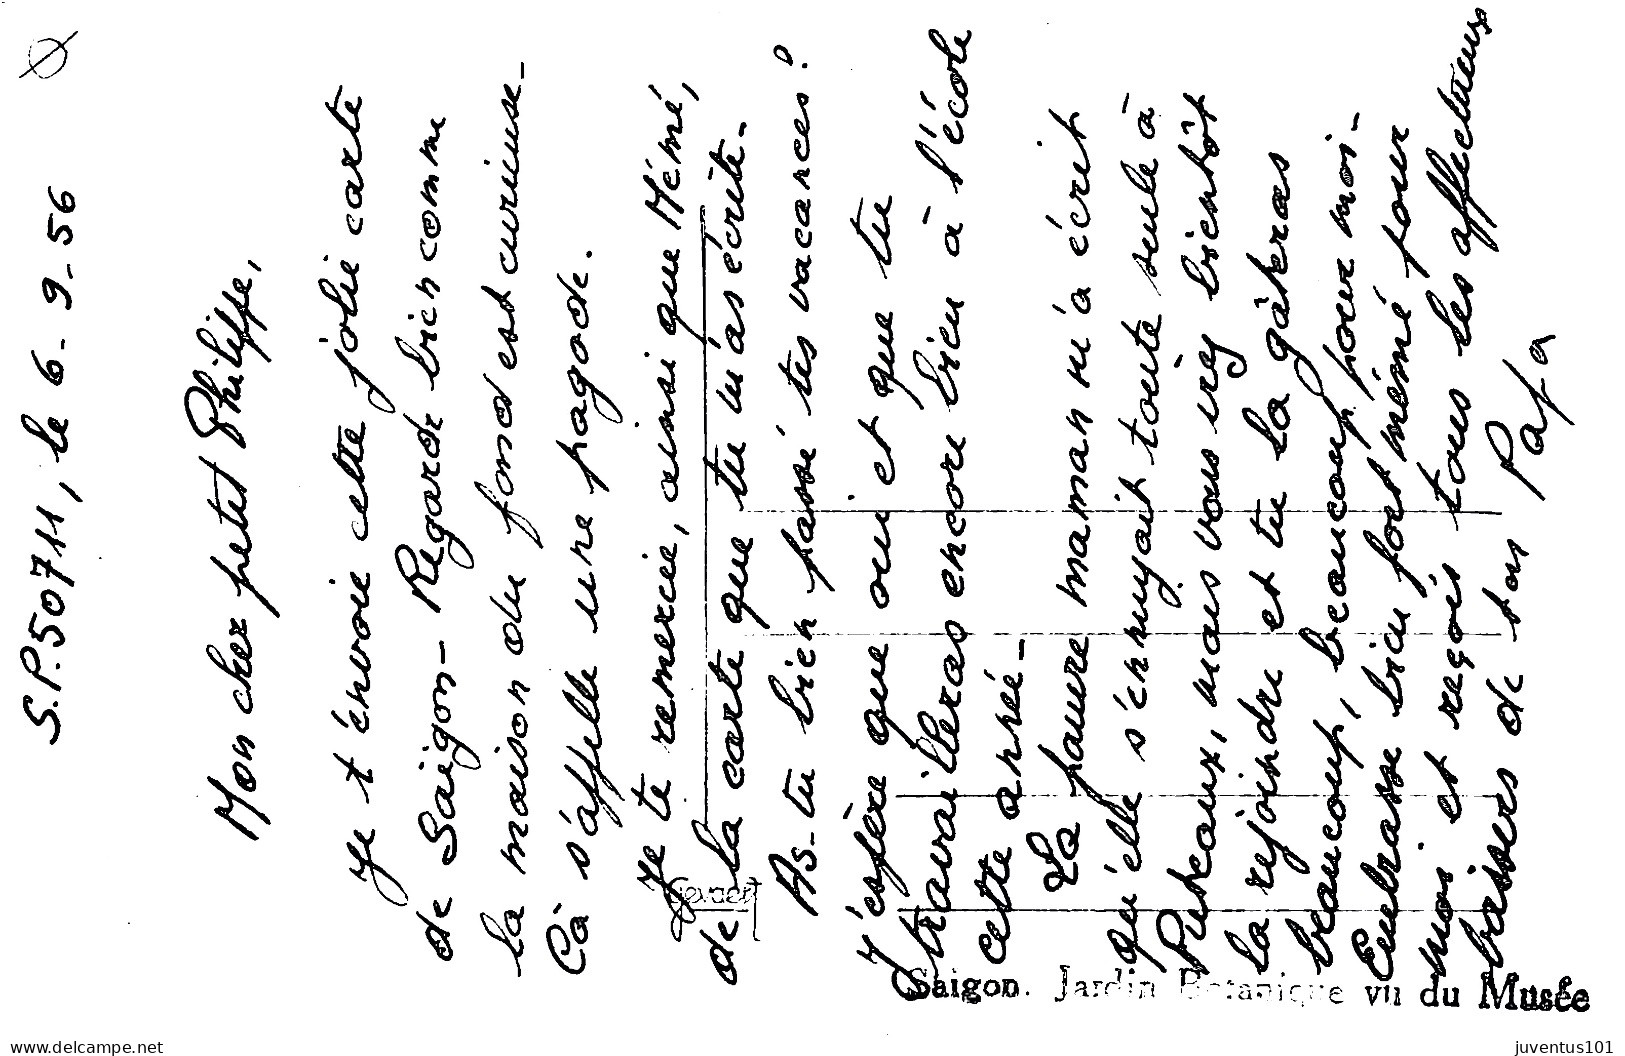 S.P. 50711, le 6-9-56
Mon cher petit Philippe,
Je t'envoie cette jolie carte
de Saigon - Regarde bien comme
la maison du fond est curieuse -
Cà s'appelle une pagode.
Je te remercie, ainsi que Mémé,
de la carte que tu m'as écrite.
As-tu bien passé tes vacances ?
J'espère que oui et que tu
travailleras encore bien à l'école
cette année -
La pauvre maman m'a écrit
qu'elle s'ennuyait toute seule à
Puteaux, mais vous irez bientôt
la rejoindre et tu la gâteras
beaucoup, beaucoup pour moi -
Embrasse bien fort mémé pour
moi et reçois tous les affectueux
baisers de ton Papa
Gevaert
Saigon. Jardin Botanique vu du Musée
www.delcampe.net
juventus101